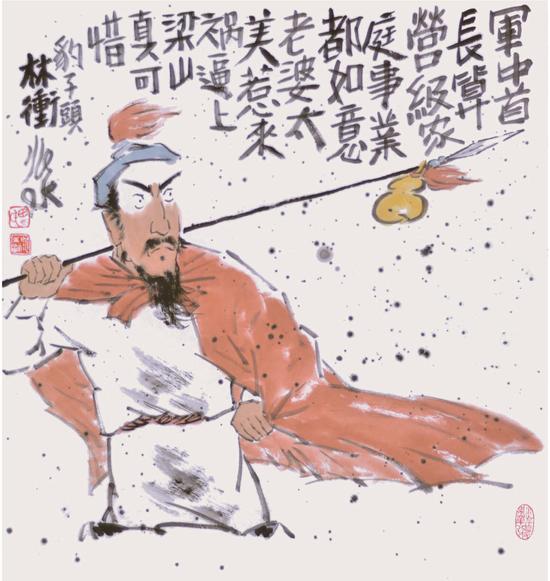 軍中首
長算
營級家
庭事業
都如意
老婆太
美惹來
祸逼上
梁山
真可
惜
豹子頭
林衝